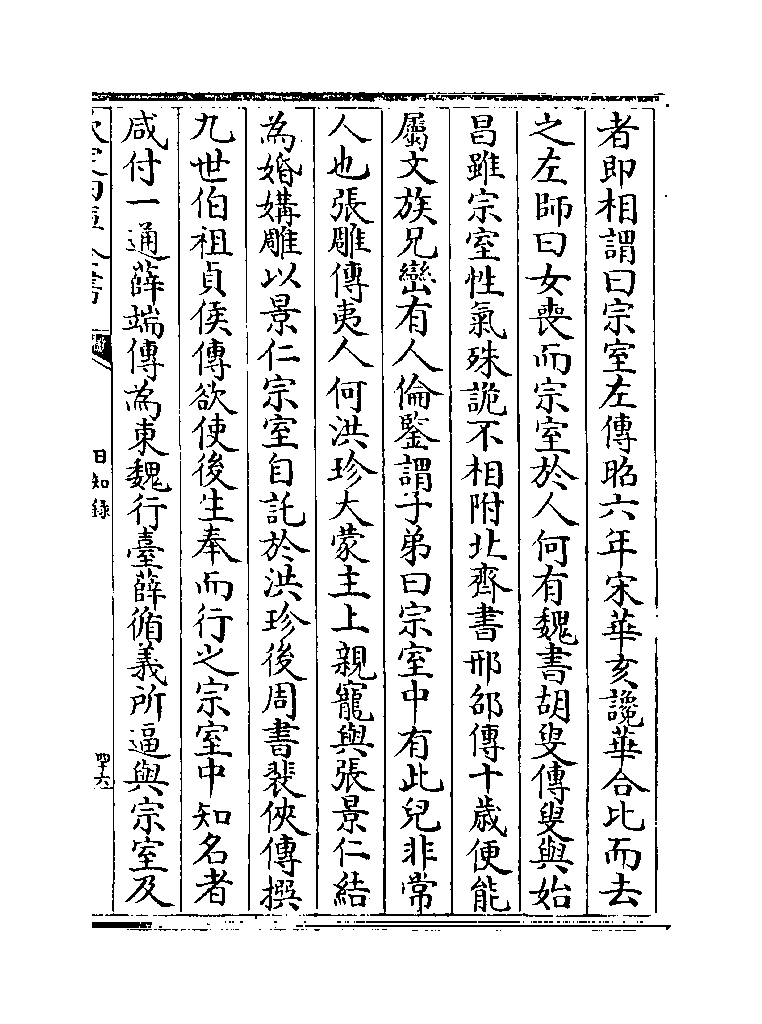 者即相謂曰宗室左傳昭六年宋華亥讒華合比而去
之左師曰女喪而宗室於人何有魏書胡叟傳叟與始
昌雖宗室性氣殊詭不相附北齊書邢邵傳十歲便能
屬文族兄巒有人倫鑒謂子弟曰宗室中有此兒非常
人也張雕傳夷人何洪珍大蒙主上親寵與張景仁結
為婚媾雕以景仁宗室自託於洪珍後周書裴俠傳撰
九世伯祖貞侯傳欲使後生奉而行之宗室中知名者
咸付一通薛端傳為東魏行臺薛循義所逼與宗室及
日知錄
四十六